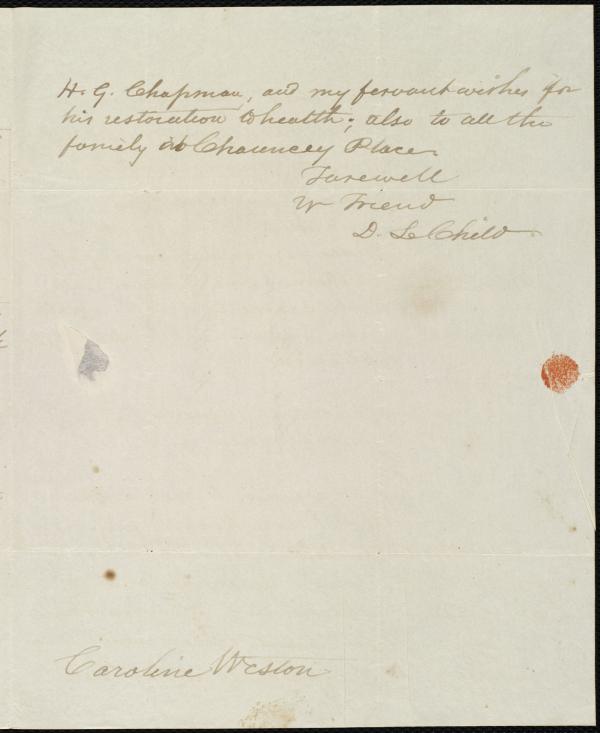 H. G. Chapman, and my fervant wishes for
his restoration to health; also to all the
family at Chauncey Place.
Farewell
Yr Friend
D. L. Child
Caroline Weston